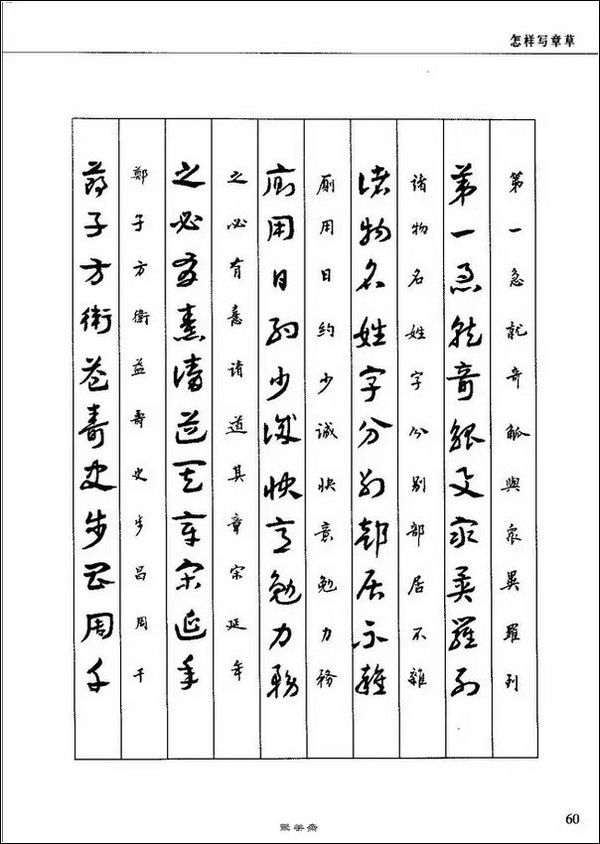 怎样写章草
第一急就奇觚與衆異羅列
第一急就奇觚與衆異羅列
諸物名姓字分别部居不雜
諸物名姓字分别部居不雜
廁用日約少誠快意勉力務
廁用日約少誠快意勉力務
之必有憙請道其章宋延年
之必有憙請道其章宋延年
鄭子方衛益壽史步昌周千
鄭子方衛益壽史步昌周千
60